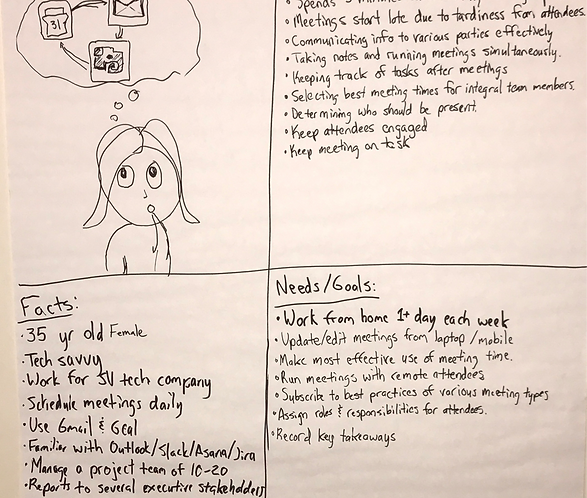 31
• Spends 5 minutes
• Meetings start late due to tardiness from attendees.
• Communicating info to various parties effectively
• Taking notes and running meetings simultaneously.
• Keeping track of tasks after meetings
• Selecting best meeting times for integral team members.
• Determining who should be present.
• Keep attendees engaged
• Keep meeting on task
Facts:
• 35 yr old Female
• Tech savvy
• Work for SV tech company
• Schedule meetings daily
• Use Gmail & GCal
• Familiar with Outlook/Slack/Asana/Jira
• Manage a project team of 10-20
• Reports to several executive stakeholders
Needs/Goals:
• Work from home 1+ day each week
• Update/edit meetings from laptop/mobile
• Make most effective use of meeting time.
• Run meetings with remote attendees
• Subscribe to best practices of various meeting types
• Assign roles & responsibilities for attendees.
• Record key takeaways